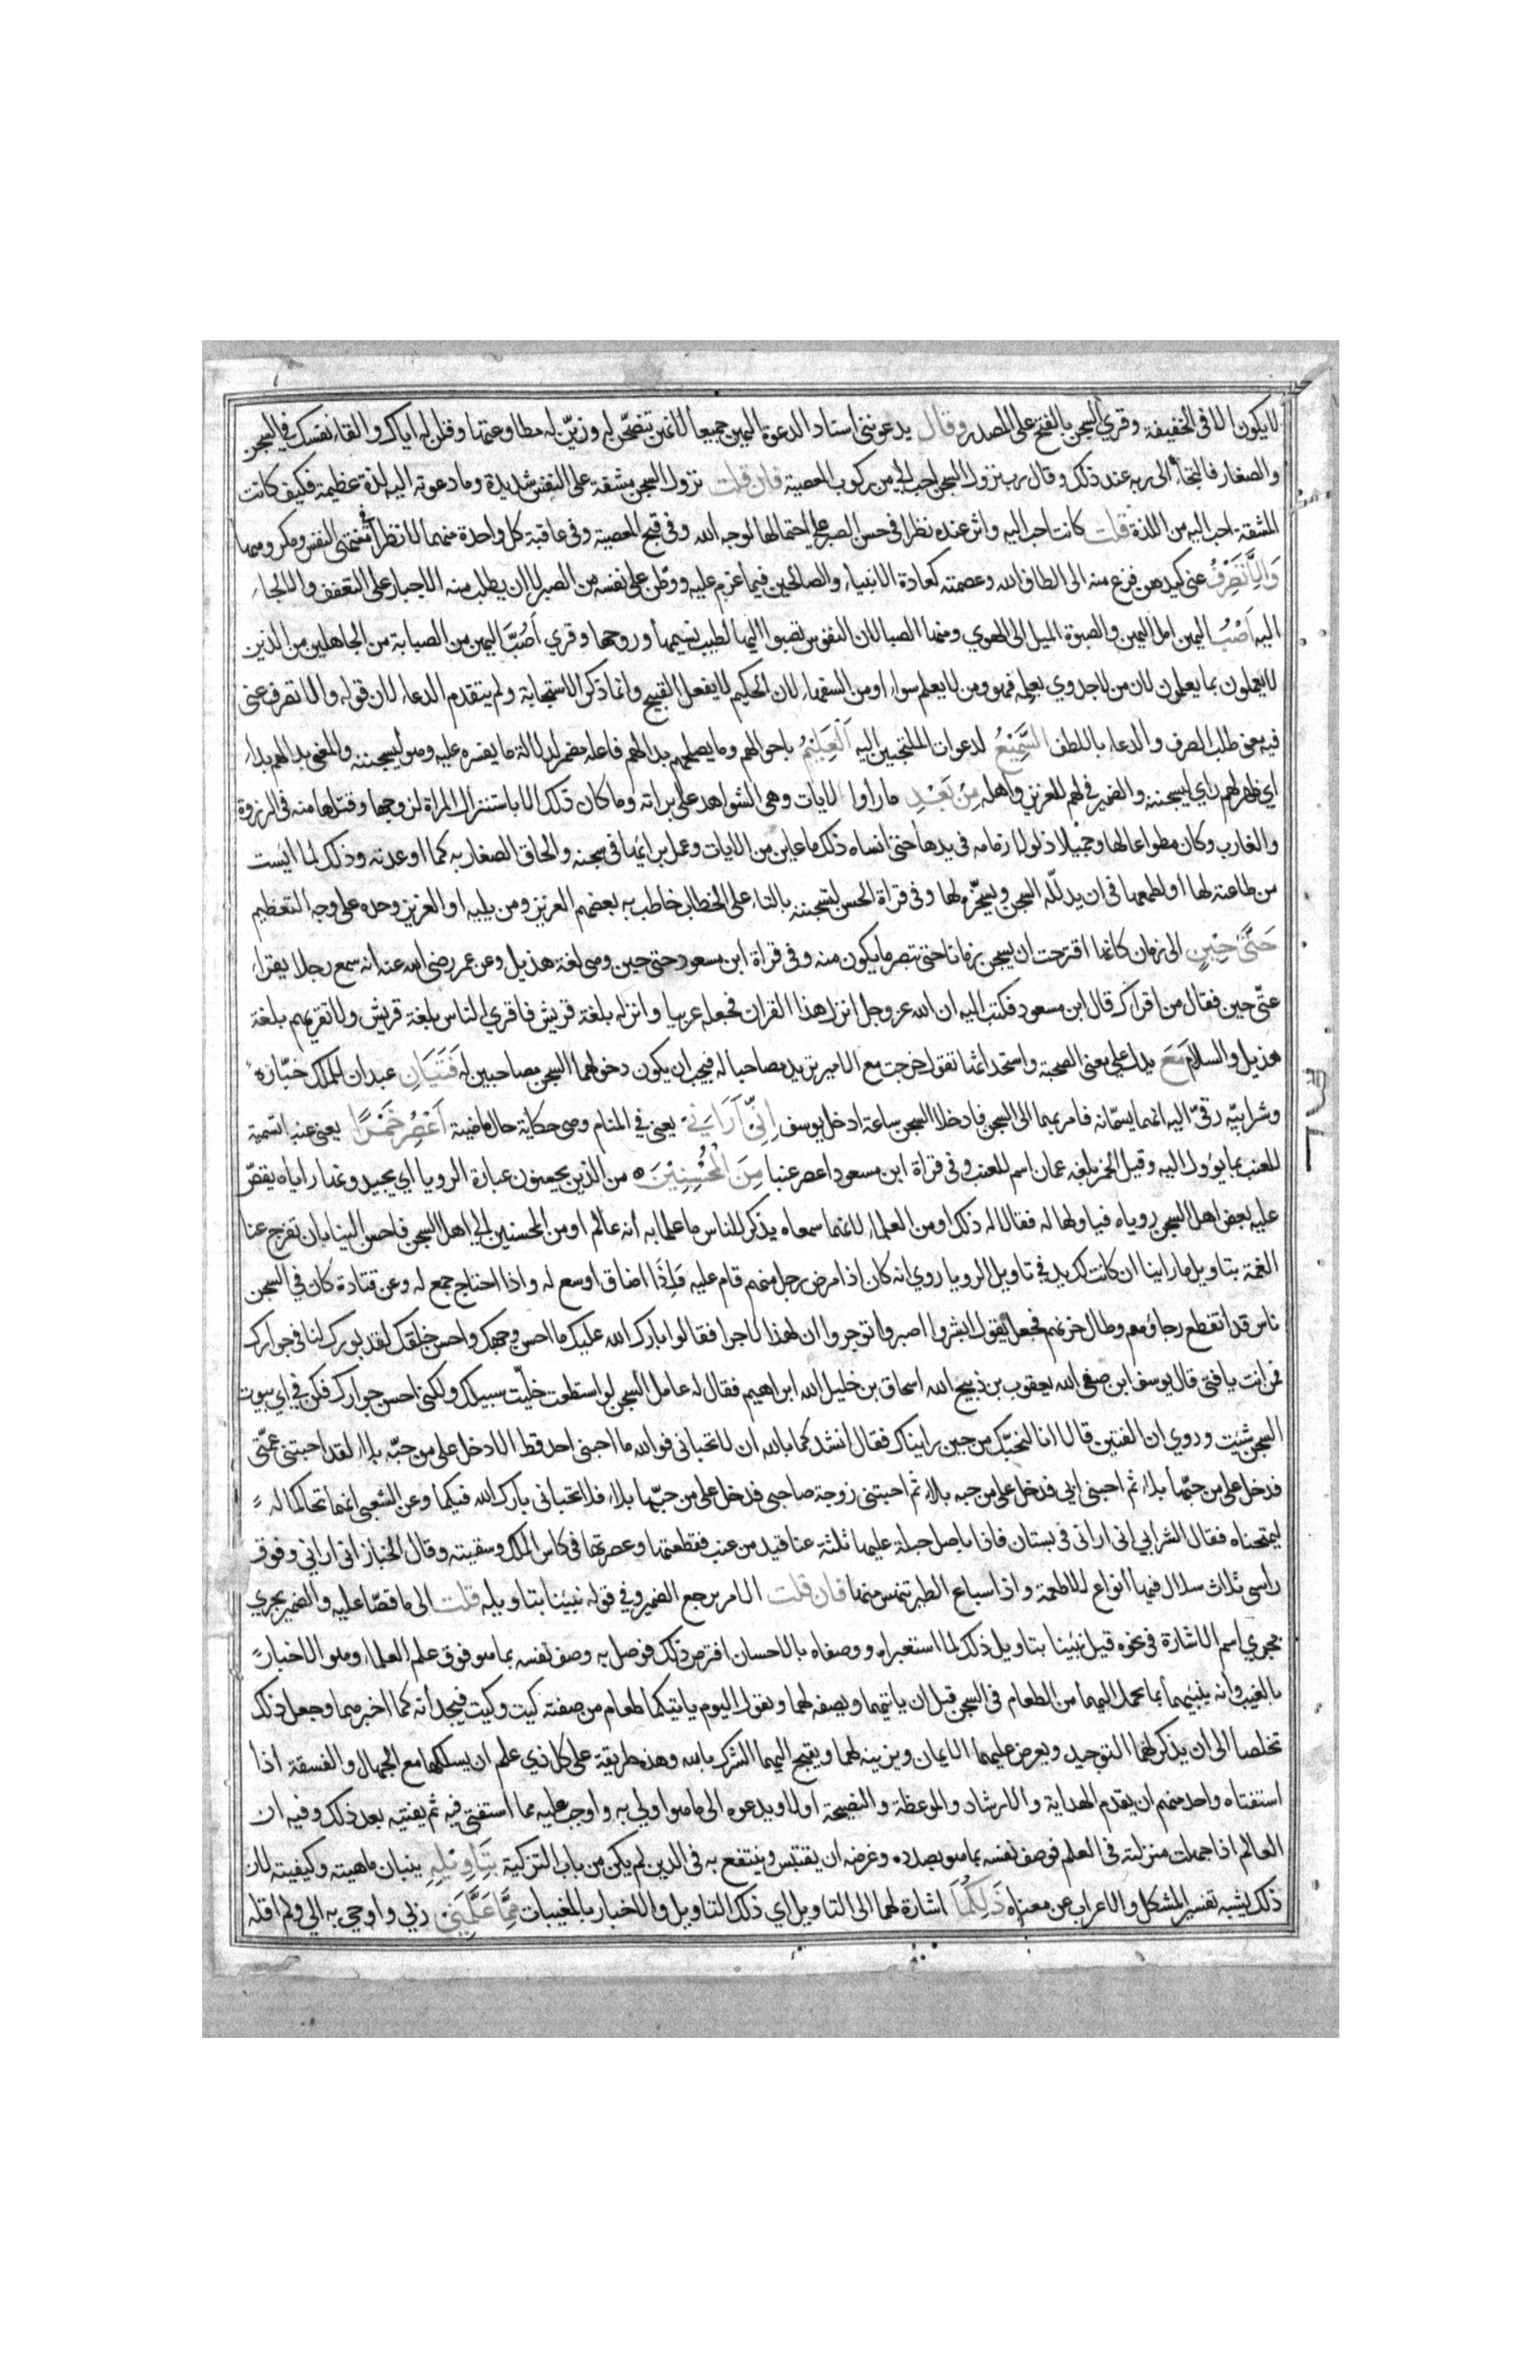 لايكون الا في الخفيفة وقري السجن بالفتح على المصدر وقال يدعونني اسناد الدعوة اليهن جميعا لانهن تنصحن له وزين له مطاوعتها وقلن له اياك والقاء نفسك في السجن
والصغار فالتجاء الى ربه عند ذلك وقال رب نزول السجن احب الي من ركوب المعصية فان قلت نزول السجن مشقة على النفس شديدة وما دعونه اليه لذة عظيمة فكيف كانت
المشقة احب اليه من اللذة قلت كانت احب اليه واثر عنده نظرا في حسن الصبر على احتمالها لوجه الله وفي قبح المعصية وفي عاقبة كل واحدة منهما لا نظرا في مشتهى النفس ومكروهها
وَاِلَّا تَصْرِفْ عني كيدهن فزع منه الى الطاف الله وعصمته كعادة الانبياء والصالحين فيما عزم عليه ووطن على نفسه من الصبر لا ان يطلب منه الاجبار على التعفف والالجاء
اليه اَصْبُ اليهن امل اليهن والصبوة الميل الى الهوي ومنها الصبا لان النفوس تصبوا اليها لطيب نسيمها وروحها وقري أَصُبَّ اليهن من الصبابة من الجاهلين من الذين
لايعملون بما يعلمون لان من لاجدوي بعلمه فهو ومن لا يعلم سواء او من السفهاء لان الحكيم لايفعل القبيح وانما ذكر الاستجابة ولم يتقدم الدعاء لان قوله والا تصرف عني
فيه معنى طلب الصرف والدعاء باللطف السَّمِيْعُ لدعوات الملتجين اليه الْعَلِيْمُ باحوالهم وما يصلحهم بدا لهم فاعله مضمر لدلالة ما يفسره عليه وهو ليسجننه والمعنى بدا لهم بداء
اي ظهر لهم راي ليسجننه والضمير في لهم للعزيز واهله مِنْ بَعْدِ ما راوا الايات وهي الشواهد على براته وما كان ذلك الا باستنزال المراة لزوجها وفتلها منه في الذروة
والغارب وكان مطواعا لها وجميلا ذلولا زمامه في يدها حتى انساه ذلك ما عاين من الايات وعمل برائها في سجنه والحاق الصغار به كما اوعدته وذلك لما ايست
من طاعته لها او لطمعها في ان يذلله السجن ويسخره لها وفي قراة الحسن لتسجننه بالتاء على الخطاب خاطب به بعضهم العزيز ومن يليه او العزيز وحده على وجه التعظيم
حَتّٰى حِيْنٍ الى زمان كانها اقترحت ان يسجن زمانا حتى تبصر ما يكون منه وفي قراة ابن مسعود حتى حين وهي لغة هذيل وعن عمر رضى الله عنه انه سمع رجلا يقراء
عتّى حين فقال من اقراك قال ابن مسعود فكتب اليه ان الله عز وجل انزل هذا القران فجعله عربيا وانزله بلغة قريش فاقري الناس بلغة قريش ولا تقريهم بلغة
هذيل والسلام مَعَ يدل على معنى الصحبة واستحداثها تقول خرجت مع الامير تريد مصاحبا له فيجب ان يكون دخولهما السجن مصاحبين له فَتَيَانِ عبدان للملك خبّازه
وشرابيّه رقيّ اليه انهما يسمّانه فامر بهما الى السجن فادخلا السجن ساعة ادخل يوسف اِنِّىْ اَرَانِىْ يعني في المنام وهي حكاية حال ماضية اَعْصِرُ خَمْرًا يعني عنبا تسمية
للعنب بما يؤول اليه وقيل الخمر بلغة عمان اسم للعنب وفي قراة ابن مسعود اعصر عنبا مِنَ الْمُحْسِنِيْنَ من الذين يحسنون عبارة الرويا اي يجيدونها راياه يقصّ
عليه بعض اهل السجن روياه فياولها له فقالا له ذلك او من العلماء لانهما سمعاه يذكر للناس ما علما به أنه عالم او من المحسنين الى اهل السجن فاحسن الينا بان تفرج عنا
الغمة بتاويل ما راينا ان كانت لك يد في تاويل الرويا روي انه كان اذا مرض رجل منهم قام عليه وَاِذَا اضاق اوسع له واذا احتاج جمع له وعن قتادة كان في السجن
ناس قد انقطع رجاؤهم وطال حزنهم فجعل يقول ابشروا اصبروا توجروا ان لهذا لاجرا فقالوا بارك الله عليك ما احسن وجهك واحسن خلقك لقد بورك لنا في جوارك
فمن انت يا فتى قال يوسف ابن صفي الله يعقوب بن ذبيح الله اسحاق بن خليل الله ابراهيم فقال له عامل السجن لو استطعت خلّيت سبيلك ولكني احسن جوارك فكن في اي بيوت
السجن شيت وروي ان الفتين قالا انا لنحبّك من حين رايناك فقال انشدكما بالله ان لا تحباني فوالله ما احبني احد قط الا دخل على من حبّه بلاء لقد احبتني عمّتي
فدخل على من حبّها بلاء ثم احبني ابي فدخل على من حبه بلاء ثم احبتني زوجة صاحبي فدخل على من حبّها بلاء فلا تحباني بارك الله فيكما وعن الشعبي انهما تحالما له
ليمتحناه فقال الشرابي اني اراني في بستان فاذا باصل حبلة عليها ثلثة عناقيد من عنب فقطعتها وعصرتها في كاس الملك وسقيته وقال الخباز اني اراني وفوق
راسي ثلاث سلال فيها انواع للاطعمة واذا سباع الطير تنهس منها فان قلت الام يرجع الضمير في قوله نبئنا بتاويله قلت الى ما قصّا عليه والضمير يجري
مجرى اسم الاشارة في نحوه قيل نبّئنا بتاويل ذلك لما استعبراه ووصفاه بالاحسان افترص ذلك فوصل به وصف نفسه بما هو فوق علم العلماء وهو الاخبار
بالغيب وانه ينبئهما بما يحمل اليهما من الطعام في السجن قبل ان ياتيهما ويصفه لهما ويقول اليوم ياتيكما طعام من صفته كيت وكيت فيجد انه كما اخبرهما وجعل ذلك
تخلصا الى ان يذكر لهما التوحيد ويعرض عليهما الايمان ويزينه لهما ويقبح اليهما الشرك بالله وهذه طريقة على كل ذي علم ان يسلكها مع الجهال والفسقة اذا
استفتاه واحد منهم ان يقدم الهداية والارشاد والموعظة والنصيحة اولا ويدعوه الى ما هوا ولي به واوجب عليه مما استفتى فيه ثم يفتيه بعد ذلك وفيه ان
العالم اذا جهلت منزلته في العلم فوصف نفسه بما هو بصدده وغرضه ان يقتبس وينتفع به في الدين لم يكن من باب التزكية بِتَاوِيْلِهِ ببيان ماهيته وكيفيته لان
ذلك يشبه تفسير المشكل والاعراب عن معناه ذَلِكُمَا اشارة لهما الى التاويل اي ذلك التاويل والاخبار بالمغيبات مِمَّا عَلَّمَنِىْ ربي واوحي به الي ولم اقله